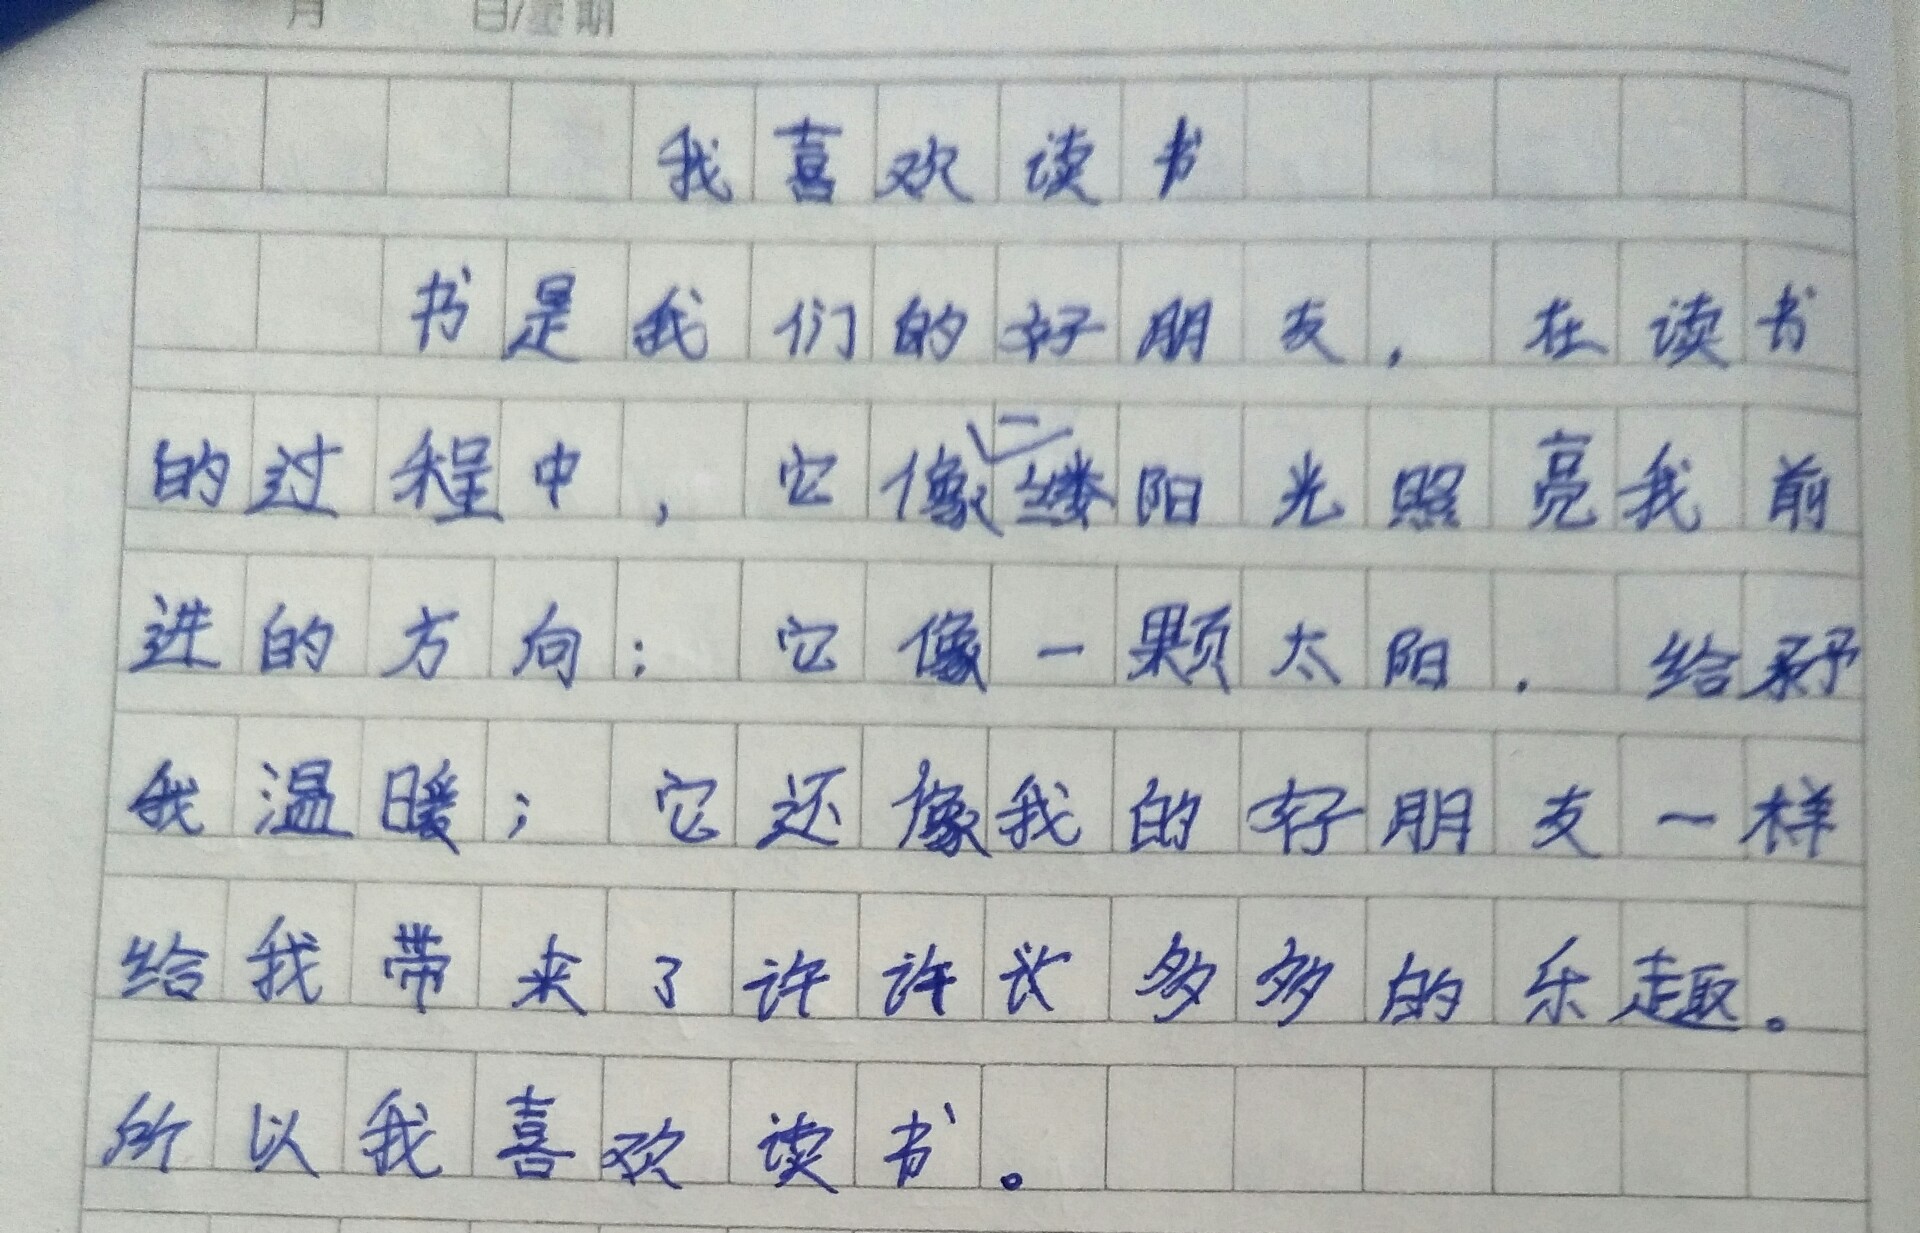 月 日/星期
我喜欢读书
书是我们的好朋友,在读书
的过程中,它像一缕阳光照亮我前
进的方向;它像一颗太阳.给予
我温暖;它还像我的好朋友一样
给我带来了许许多多的乐趣。
所以我喜欢读书。